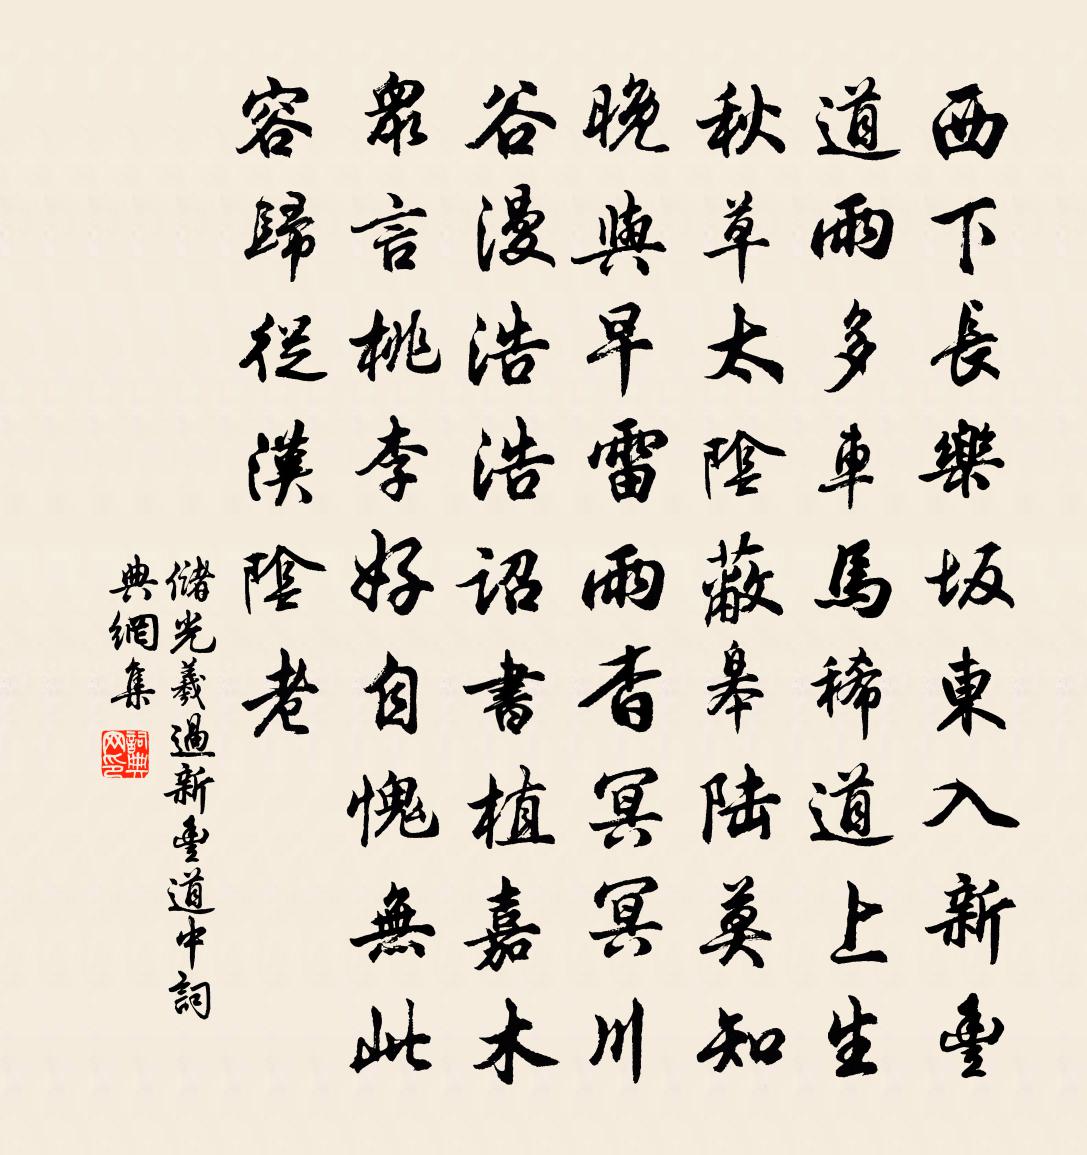 西下長樂坂東入新豐
道雨多車馬稀道上生
秋草太陰蔽皋陸莫知
晚與早雷雨杳冥冥川
谷漫浩浩詔書植嘉木
眾言桃李好自愧無此
容歸從漢陰老
儲光羲過新豐道中詞
典網集
詞典網印